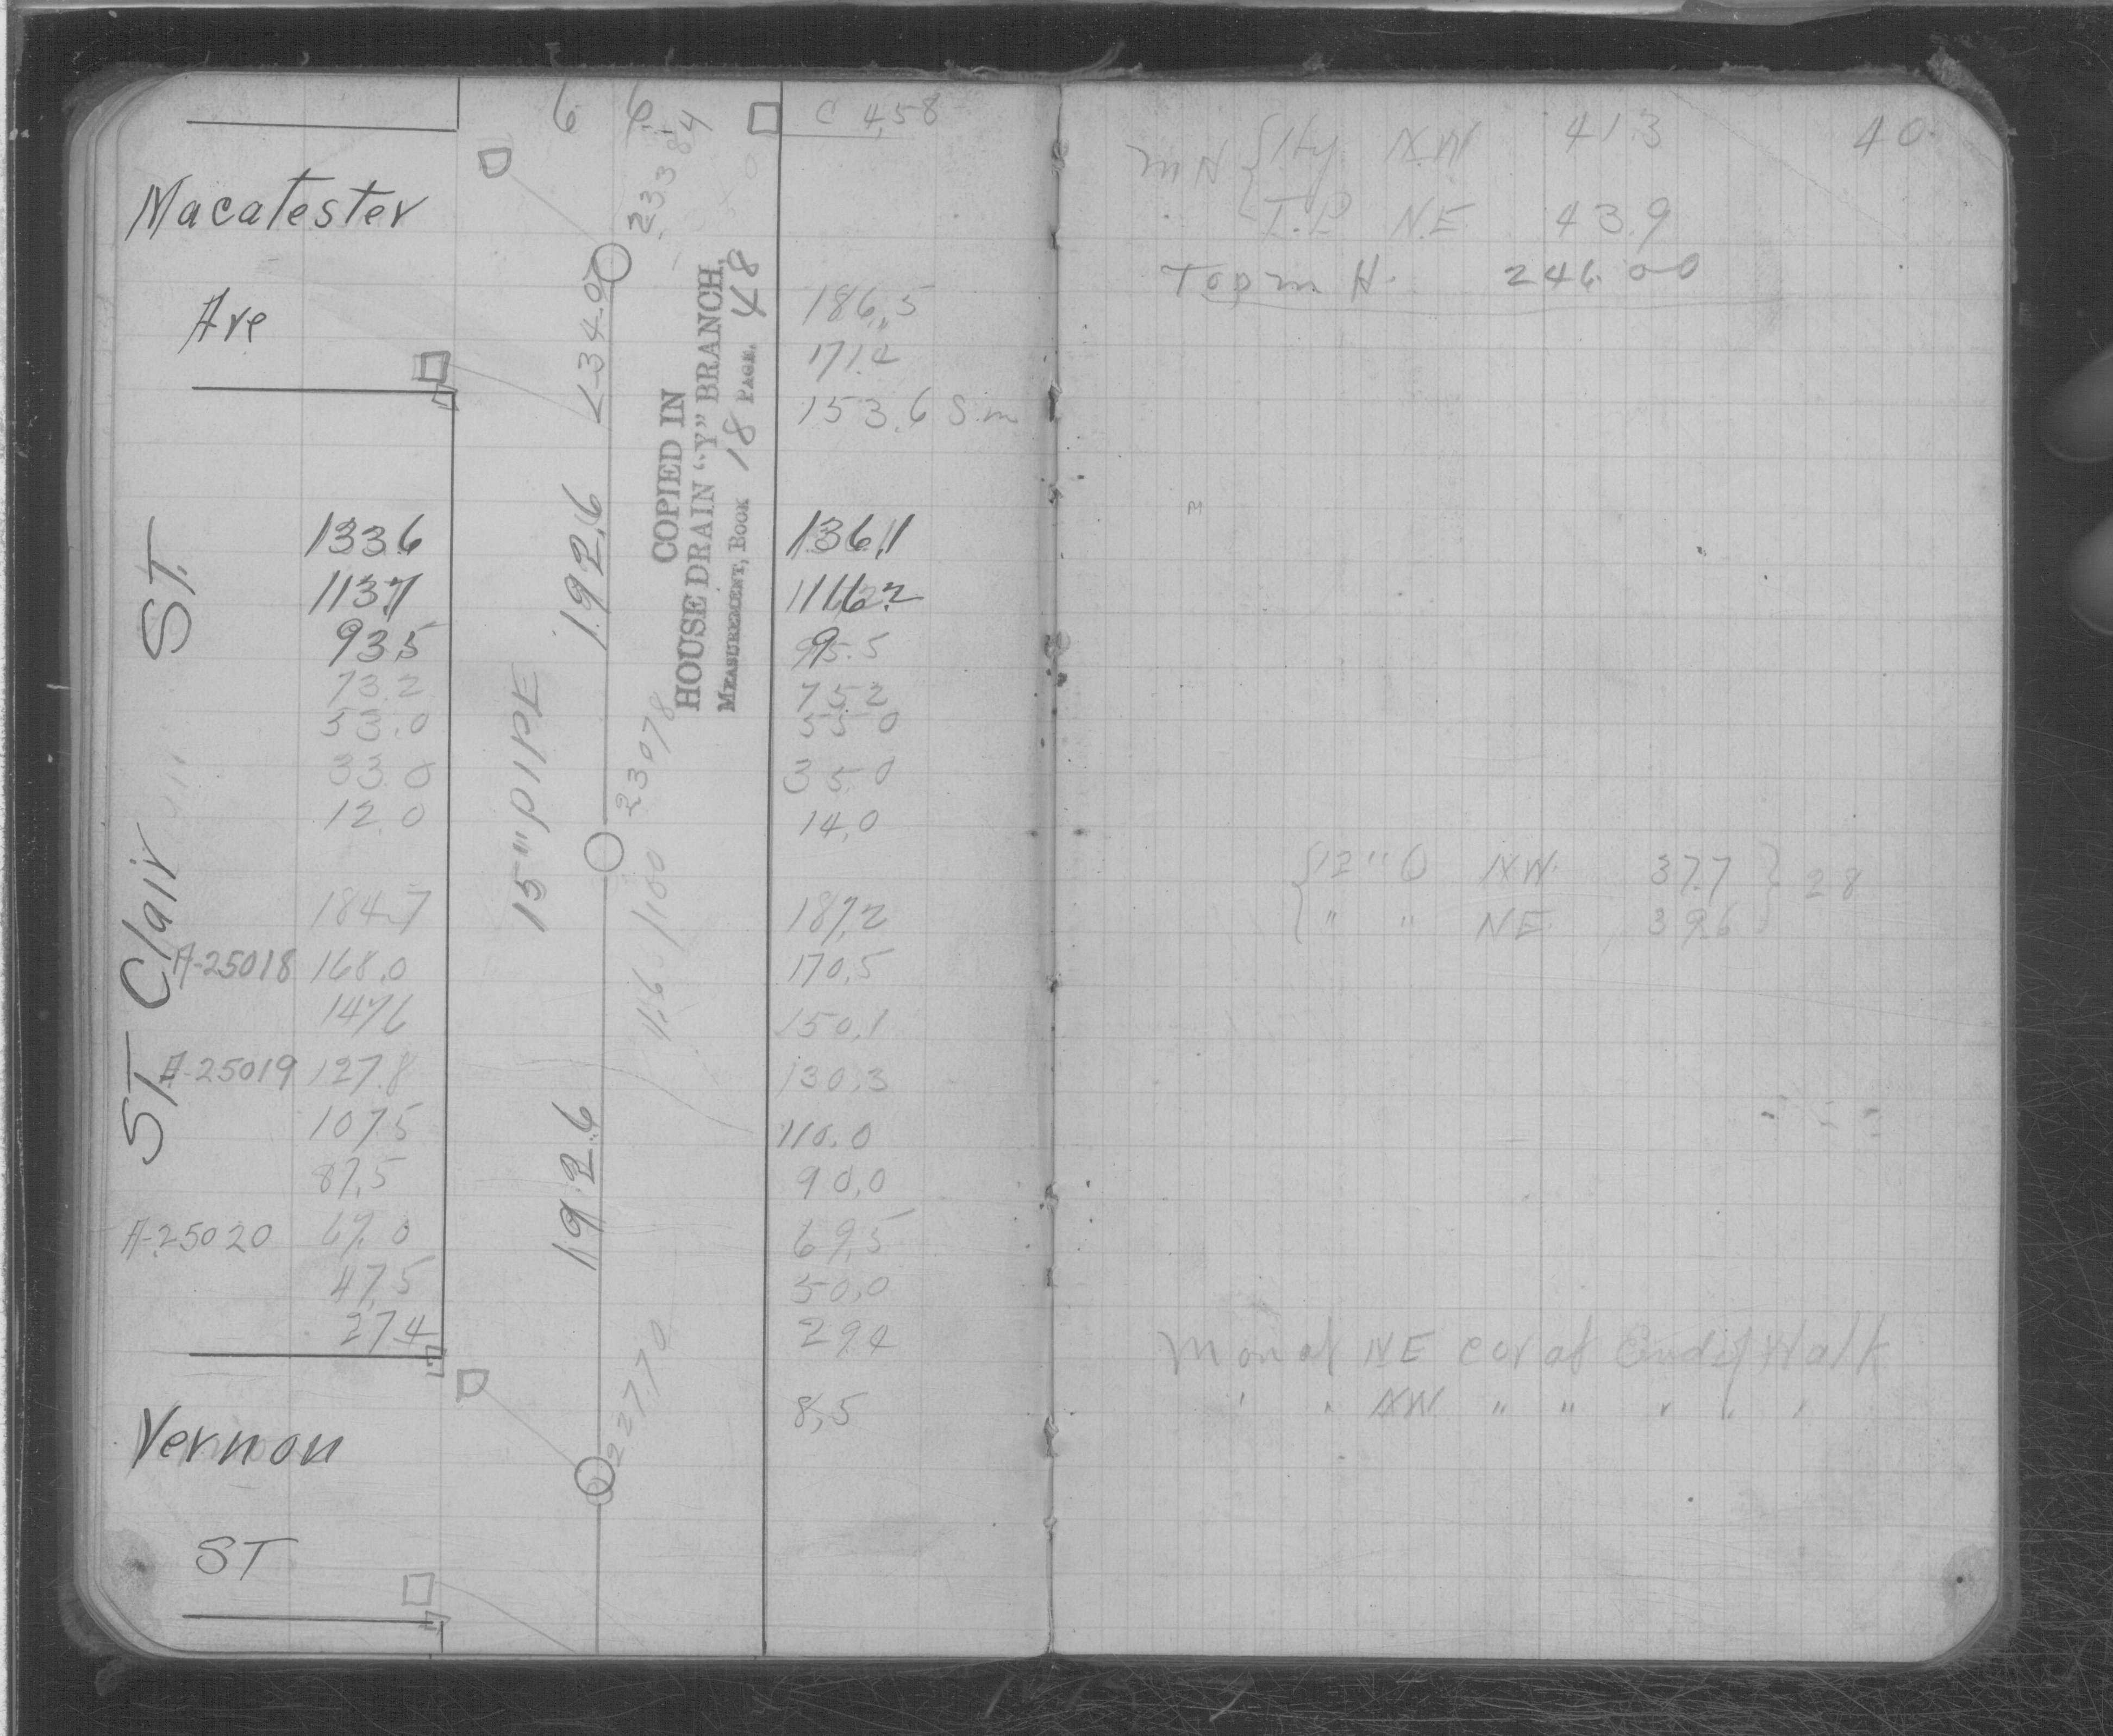 6 6 C 4,58
233.84
Macalester
Ave
L-34-07
186.5
171.2
153.6 S.m
COPIED IN
HOUSE DRAIN "Y" BRANCH,
MEASUREMENT, BOOK 18 PAGE. 48
192.6
133.6 136.1
113.7 116.2
93.5 95.5
73.2 75.2
53.0 55.0
33.0 35.0
12.0 14.0
15" PIPE
230.78
ST Clair ST.
1.16 / 100
184.7 187.2
A-25018 168.0 170.5
147.6 150.1
A-25019 127.8 130.3
107.5 110.0
87.5 90.0
A-25020 67.0 69.5
47.5 50.0
27.4 29.4
192.6
227.70
8.5
Vernon
ST
40
MH { Hy NW 41.3
T.P N.E. 43.9
Top m H. 246.00
{ 12" O NW. 37.7 } 28
" " NE 39.6
Mon at NE cor at End of Walk
" " NW " " " " "